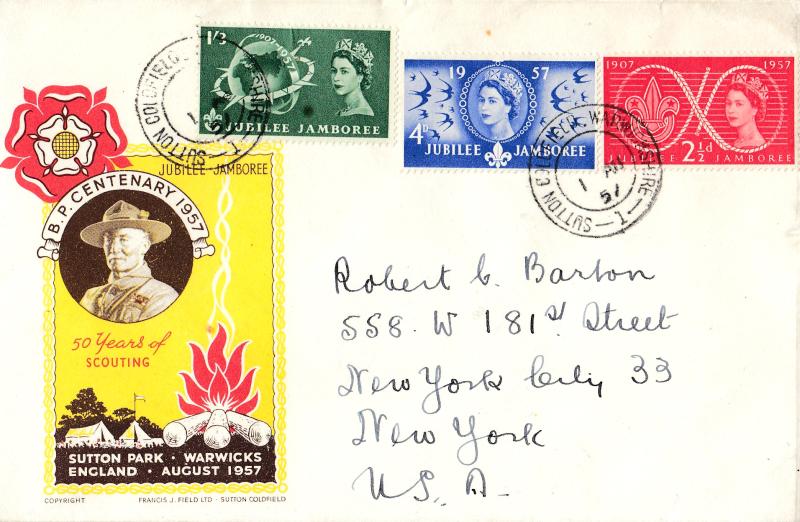 1/3
1907-1957
JUBILEE JAMBOREE
1957
4D
JUBILEE JAMBOREE
1907 1957
2½d
JAMBOREE
SUTTON COLDFIELD
SUTTON COLDFIELD, WARWICKSHIRE
1 AU
57
JUBILEE-JAMBOREE
B.P. CENTENARY 1957
50 Years of
SCOUTING
SUTTON PARK · WARWICKS
ENGLAND · AUGUST 1957
COPYRIGHT FRANCIS J. FIELD LTD · SUTTON COLDFIELD
Robert C. Barton
558 W 181st Street
New York City 33
New York
U.S.A.